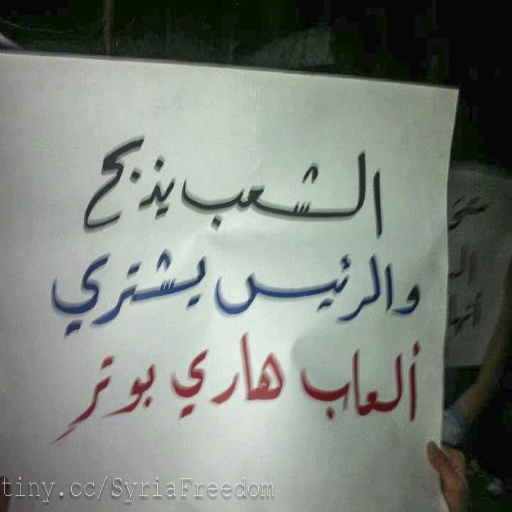 الشعب يذبح
والرئيس يشتري
ألعاب هاري بوتر
tiny.cc/SyriaFreedom